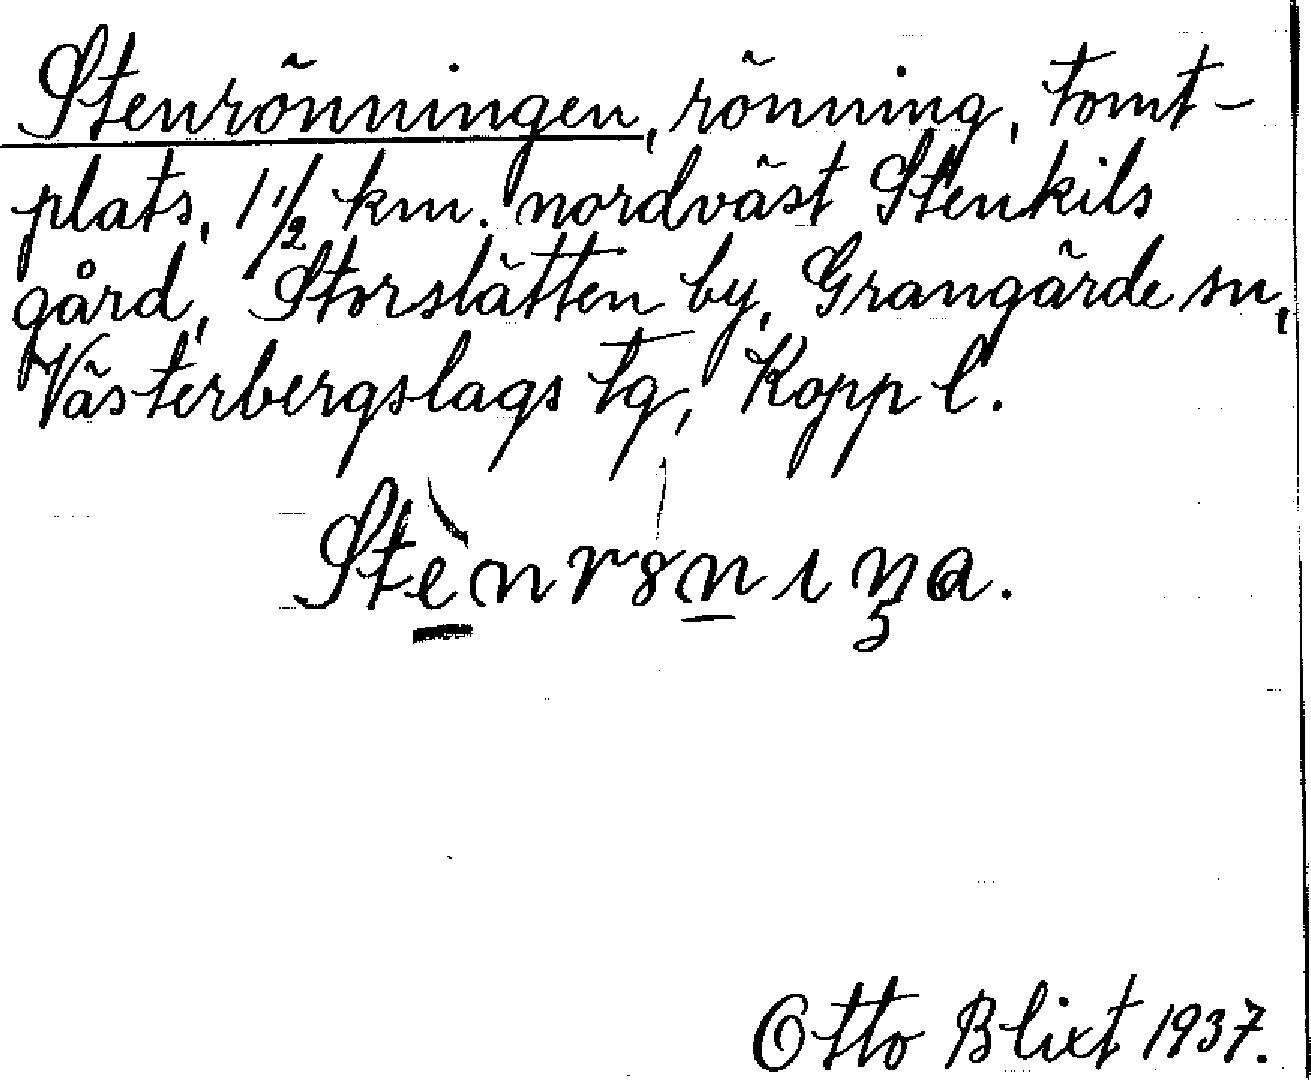 Stenrönningen, rönning, tomt-
plats, 1 1/2 km. nordväst Stenkils
gård, Storslätten by, Grangärde sn,
Västerbergslags tg, Kopp l.
Stènrȣnıŋa.
Otto Blixt 1937.